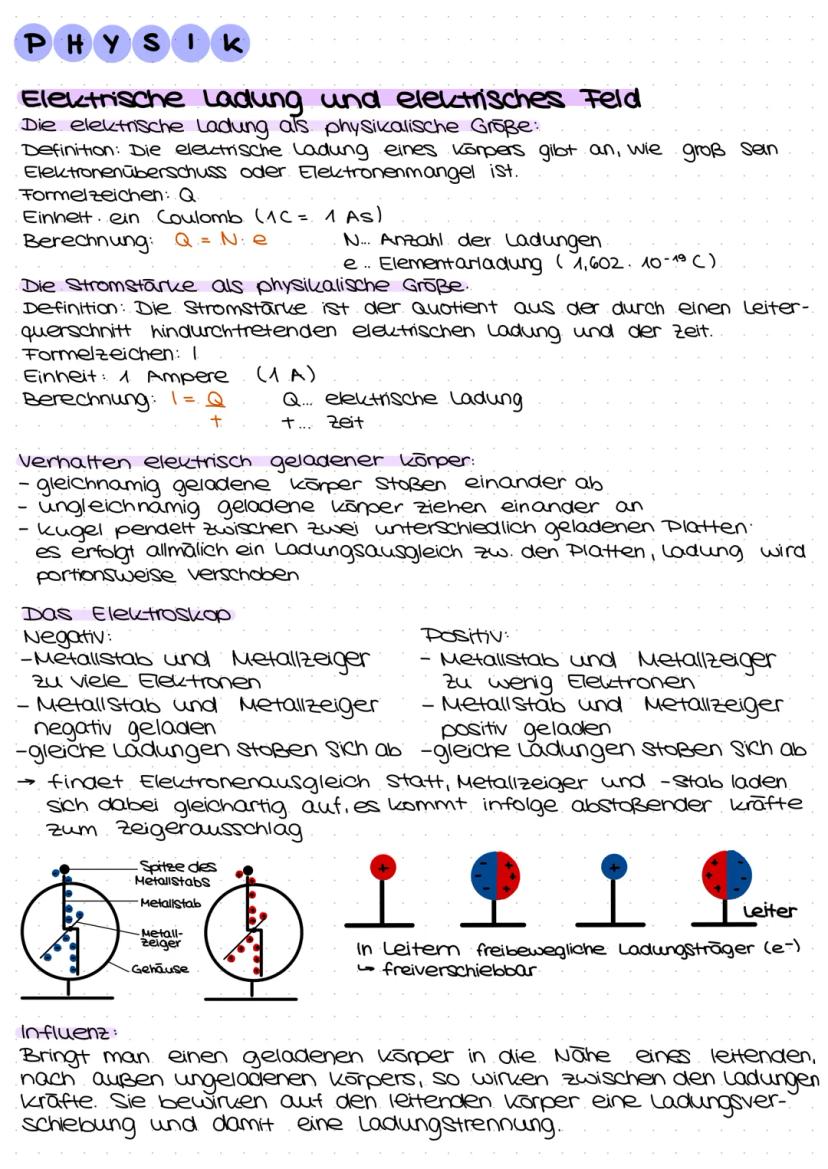 PHYSIK
Elektrische Ladung und elektrisches Feld
Die elektrische Ladung als physikalische Größe:
Definition: Die elektrische Ladung eines Körpers gibt an, wie groß sein
Elektronenüberschuss oder Elektronenmangel ist.
Formelzeichen: Q
Einheit: ein Coulomb (1C = 1 As)
Berechnung: Q = N · e N... Anzahl der Ladungen
e .. Elementarladung (1,602 · 10⁻¹⁹ C)
Die Stromstärke als physikalische Größe:
Definition: Die Stromstärke ist der Quotient aus der durch einen Leiter-
querschnitt hindurchtretenden elektrischen Ladung und der Zeit.
Formelzeichen: I
Einheit: 1 Ampere (1 A)
Berechnung: I = Q/t Q... elektrische Ladung
t... Zeit
Verhalten elektrisch geladener Körper:
- gleichnamig geladene Körper stoßen einander ab
- ungleichnamig geladene Körper ziehen einander an
- Kugel pendelt zwischen zwei unterschiedlich geladenen Platten:
es erfolgt allmälich ein Ladungsausgleich zw. den Platten, Ladung wird
portionsweise verschoben
Das Elektroskop
Negativ:
- Metallstab und Metallzeiger
zu viele Elektronen
- Metallstab und Metallzeiger
negativ geladen
- gleiche Ladungen stoßen sich ab
Positiv:
- Metallstab und Metallzeiger
zu wenig Elektronen
- Metallstab und Metallzeiger
positiv geladen
- gleiche Ladungen stoßen sich ab
→ findet Elektronenausgleich statt, Metallzeiger und -stab laden
sich dabei gleichartig auf, es kommt infolge abstoßender Kräfte
zum Zeigerausschlag
Spitze des
Metallstabs
Metallstab
Metall-
zeiger
Gehäuse
Leiter
In Leitern freibewegliche Ladungsträger (e⁻)
↳ freiverschiebbar
Influenz:
Bringt man einen geladenen Körper in die Nähe eines leitenden,
nach außen ungeladenen Körpers, so wirken zwischen den Ladungen
Kräfte. Sie bewirken auf den leitenden Körper eine Ladungsver-
schiebung und damit eine Ladungstrennung.